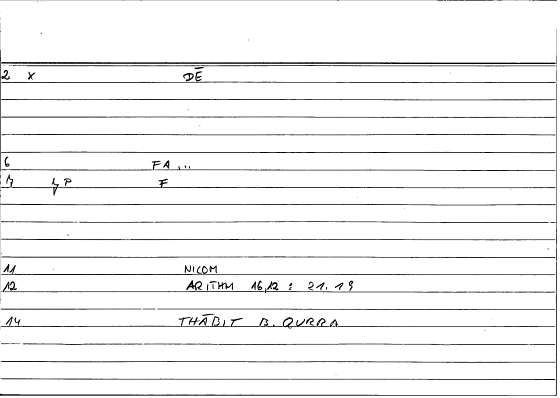 2 x DĒ
6 FA...
7 P F
11 NICOM
12 ARITHM 16,12 : 21,19
14 THĀBIT B. QURRA